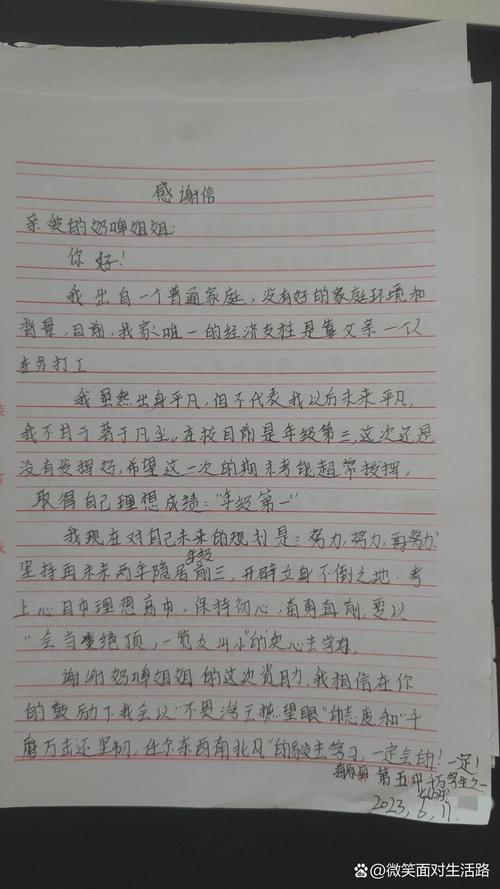 感谢信
亲爱的奶啤姐姐
你好!
我出自一个普通家庭,没有好的家庭环境和
背景,目前,我家唯一的经济支柱是靠父亲一人
在外打工
我虽然出身平凡,但不代表我以后未来平凡,
我不甘于落于凡尘,在校目前是年级第三,这次还是
没有发挥好,希望这一次的期末考能超常发挥,
取得自己理想成绩:“年级第一”
我现在对自己未来的规划是:努力,努力,再努力
坚持再未来两年稳居年级前三,开辟立身不倒之地.考
上心目中理想高中,保持初心,奋勇直前,要以
“会当凌绝顶,一览众山小”的决心去学习.
谢谢奶啤姐姐的这次资助,我相信在你
的鼓励下我会以“不畏浮云遮望眼”的态度和“千
磨万击还坚韧,任尔东西南北风”的去学习,一定会的!一定!
第五中学生之一
2023,6,11,
百家号/微笑面对生活路